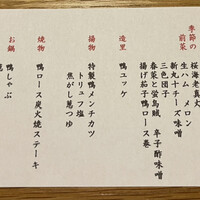 季節の
前菜
桜海老真丈
生ハム メロン
新丸十チーズ味噌
三色団子
春菜と蛍烏賊 辛子酢味噌
揚げ茄子鴨ロース巻
造里
鴨ユッケ
揚物
特製鴨メンチカツ
トリュフ塩
焦がし葱つゆ
焼物
鴨ロース炭火焼ステーキ
お鍋
鴨しゃぶ